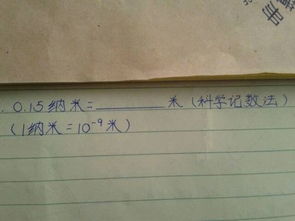 . 0.15纳米=________米(科学记数法)
(1纳米=10⁻⁹米)